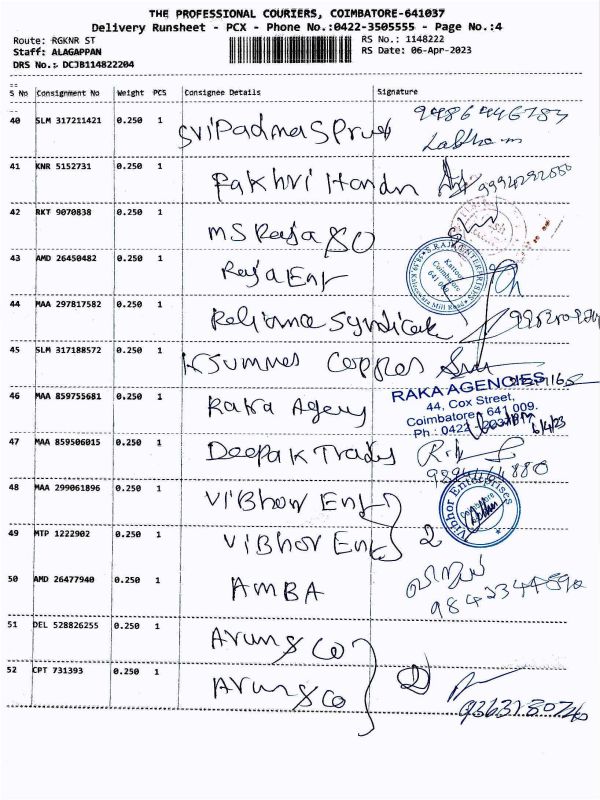 THE PROFESSIONAL COURIERS, COIMBATORE-641037
Delivery Runsheet - PCX - Phone No.:0422-3505555 - Page No.:4
Route: RGKNR ST
RS No.: 1148222
Staff: ALAGAPPAN
RS Date: 06-Apr-2023
DRS No.: DCJB114822204
S No Consignment No Weight PCS Consignee Details Signature
40 SLM 317211421 0.250 1 Sri Padma
41 KNR 5152731 0.250 1
42 RKT 9070838 0.250 1 MS Raja & CO
43 AMD 26450482 0.250 1 Raja Ent
S. RAJ ENTERPRISES
Kattoor
Coimbatore
44 MAA 297817582 0.250 1 Reliance Syndicate
45 SLM 317188572 0.250 1
46 MAA 859755681 0.250 1 Raka Agency
RAKA AGENCIES
44, Cox Street,
Coimbatore - 641 009.
Ph : 0422 -
6/4/23
47 MAA 859506015 0.250 1 Deepak Trades
48 MAA 299061896 0.250 1 ViBhor Ent
Vibhor Enterprises
49 MTP 1222902 0.250 1 ViBhor Ent 2
50 AMD 26477940 0.250 1 AMBA
51 DEL 528826255 0.250 1 Arun & Co
52 CPT 731393 0.250 1 Arun & Co 2